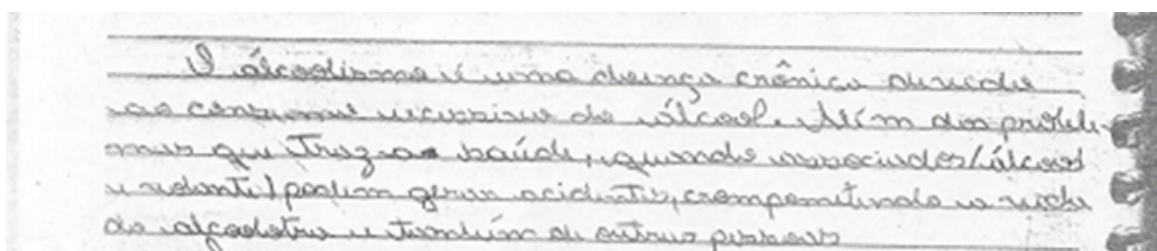 O álcoolismo é uma doença crônica devido
ao consumo excessivo do álcool. Além dos proble-
mas que traz a saúde, quando associados (álcool
e volante) podem gerar acidentes, comprometendo a vida
do e também de outras pessoas